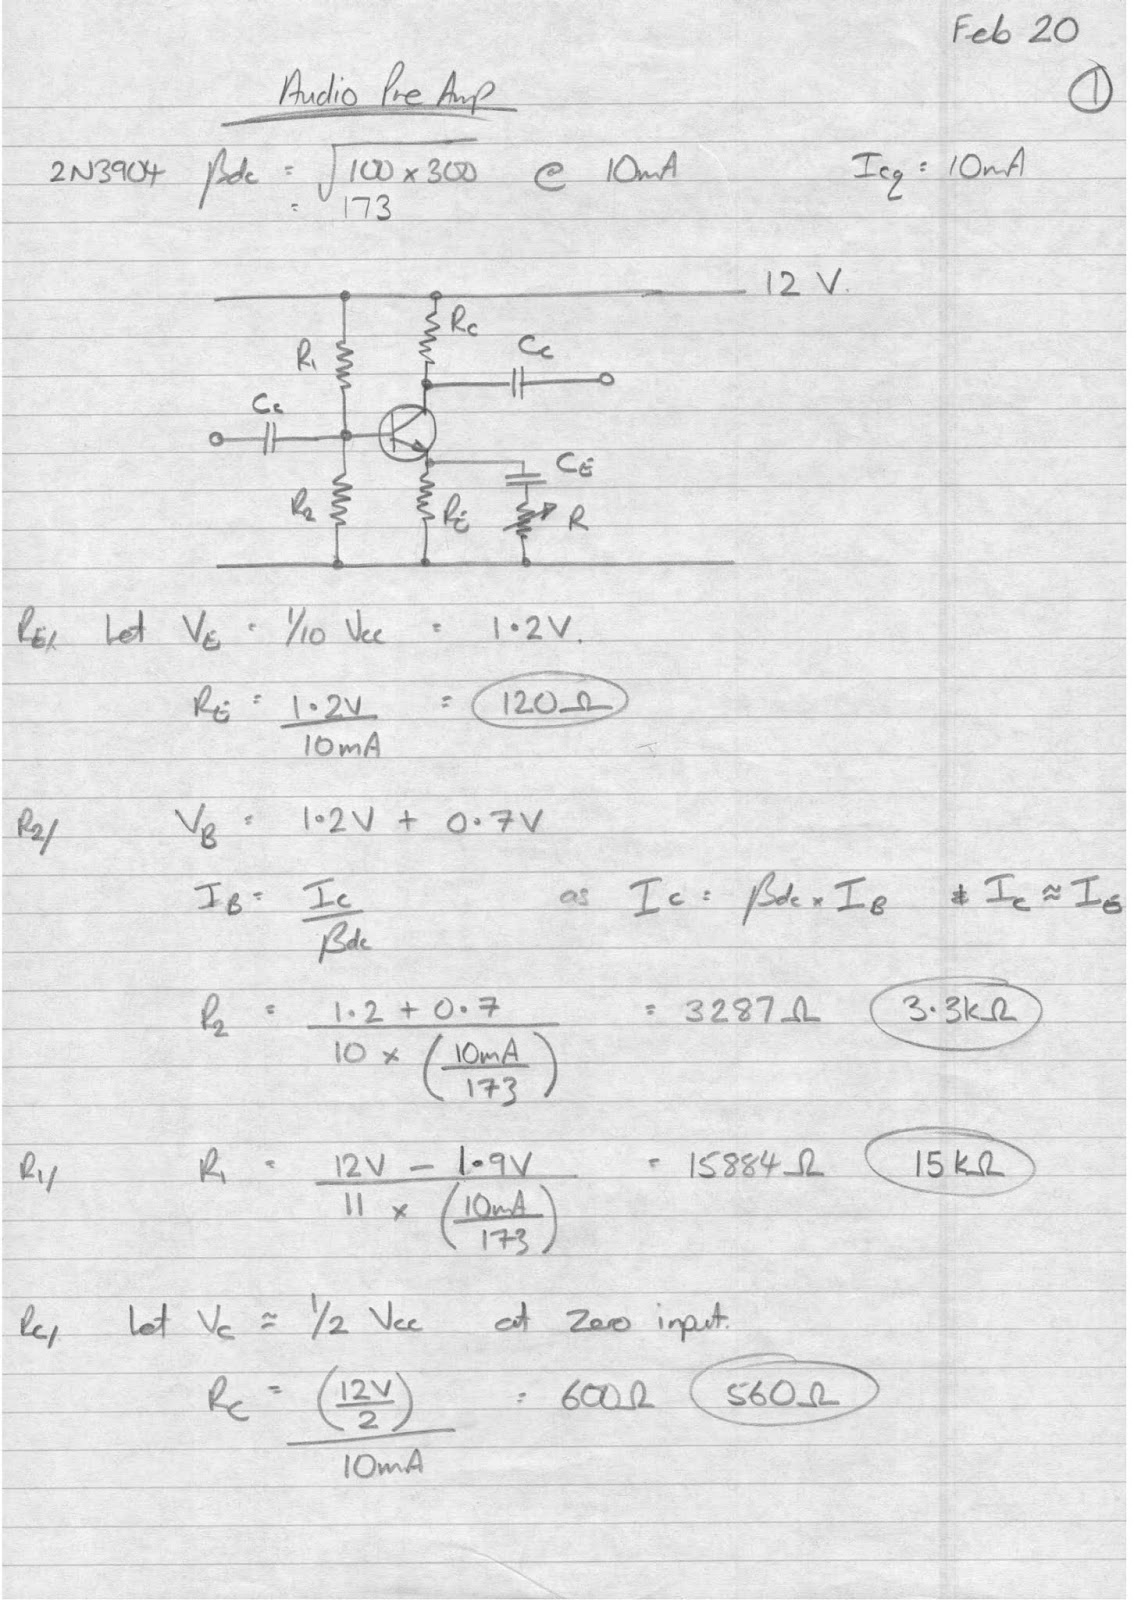 Feb 20
1
Audio Pre Amp
2N3904 βdc = √100 × 300 @ 10mA Icq = 10mA
= 173
12 V.
Rc
R1
Cc
Cc
CE
R2
RE
R
RE/ Let VE = 1/10 Vcc = 1.2V.
RE = 1.2V / 10mA = 120Ω
R2/ VB = 1.2V + 0.7V
IB = Ic / βdc as Ic = βdc × IB & Ic ≈ IE
R2 = 1.2 + 0.7 / 10 × (10mA / 173) = 3287Ω 3.3kΩ
R1/ R1 = 12V − 1.9V / 11 × (10mA / 173) = 15884Ω 15kΩ
Rc/ Let Vc ≈ 1/2 Vcc at zero input.
Rc = (12V / 2) / 10mA = 600Ω 560Ω